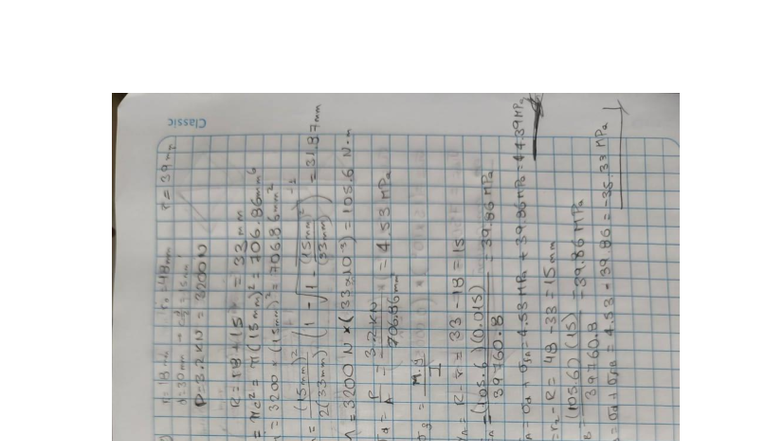 Classic
r₁=18mm r₂=48mm r=39mm
d=30mm → c=15mm
P=3.2KN = 3200N
R=18+15 = 33mm
= πc² = π(15mm)² = 706.86mm²
= 3200 × (15mm)² = 706.86mm²
= (15mm)² / 2(33mm) (1 - √1 - (15mm)²/(33mm)²)⁻¹ = 31.87mm
= 3200N × (33×10⁻³) = 105.6 N·m
σd = P/A = 3.2KN / 706.86mm² = 4.53 MPa
= M·y / I
= R - r = 33 - 18 = 15
= (105.6)(0.015) / 39760.8 = 39.86 MPa
= σd + = 4.53 MPa + 39.86MPa = 44.39MPa
= r₂ - R = 48 - 33 = 15mm
= (105.6)(15) / 39760.8 = 39.86 MPa
= σd + = 4.53 - 39.86 = -35.33 MPa